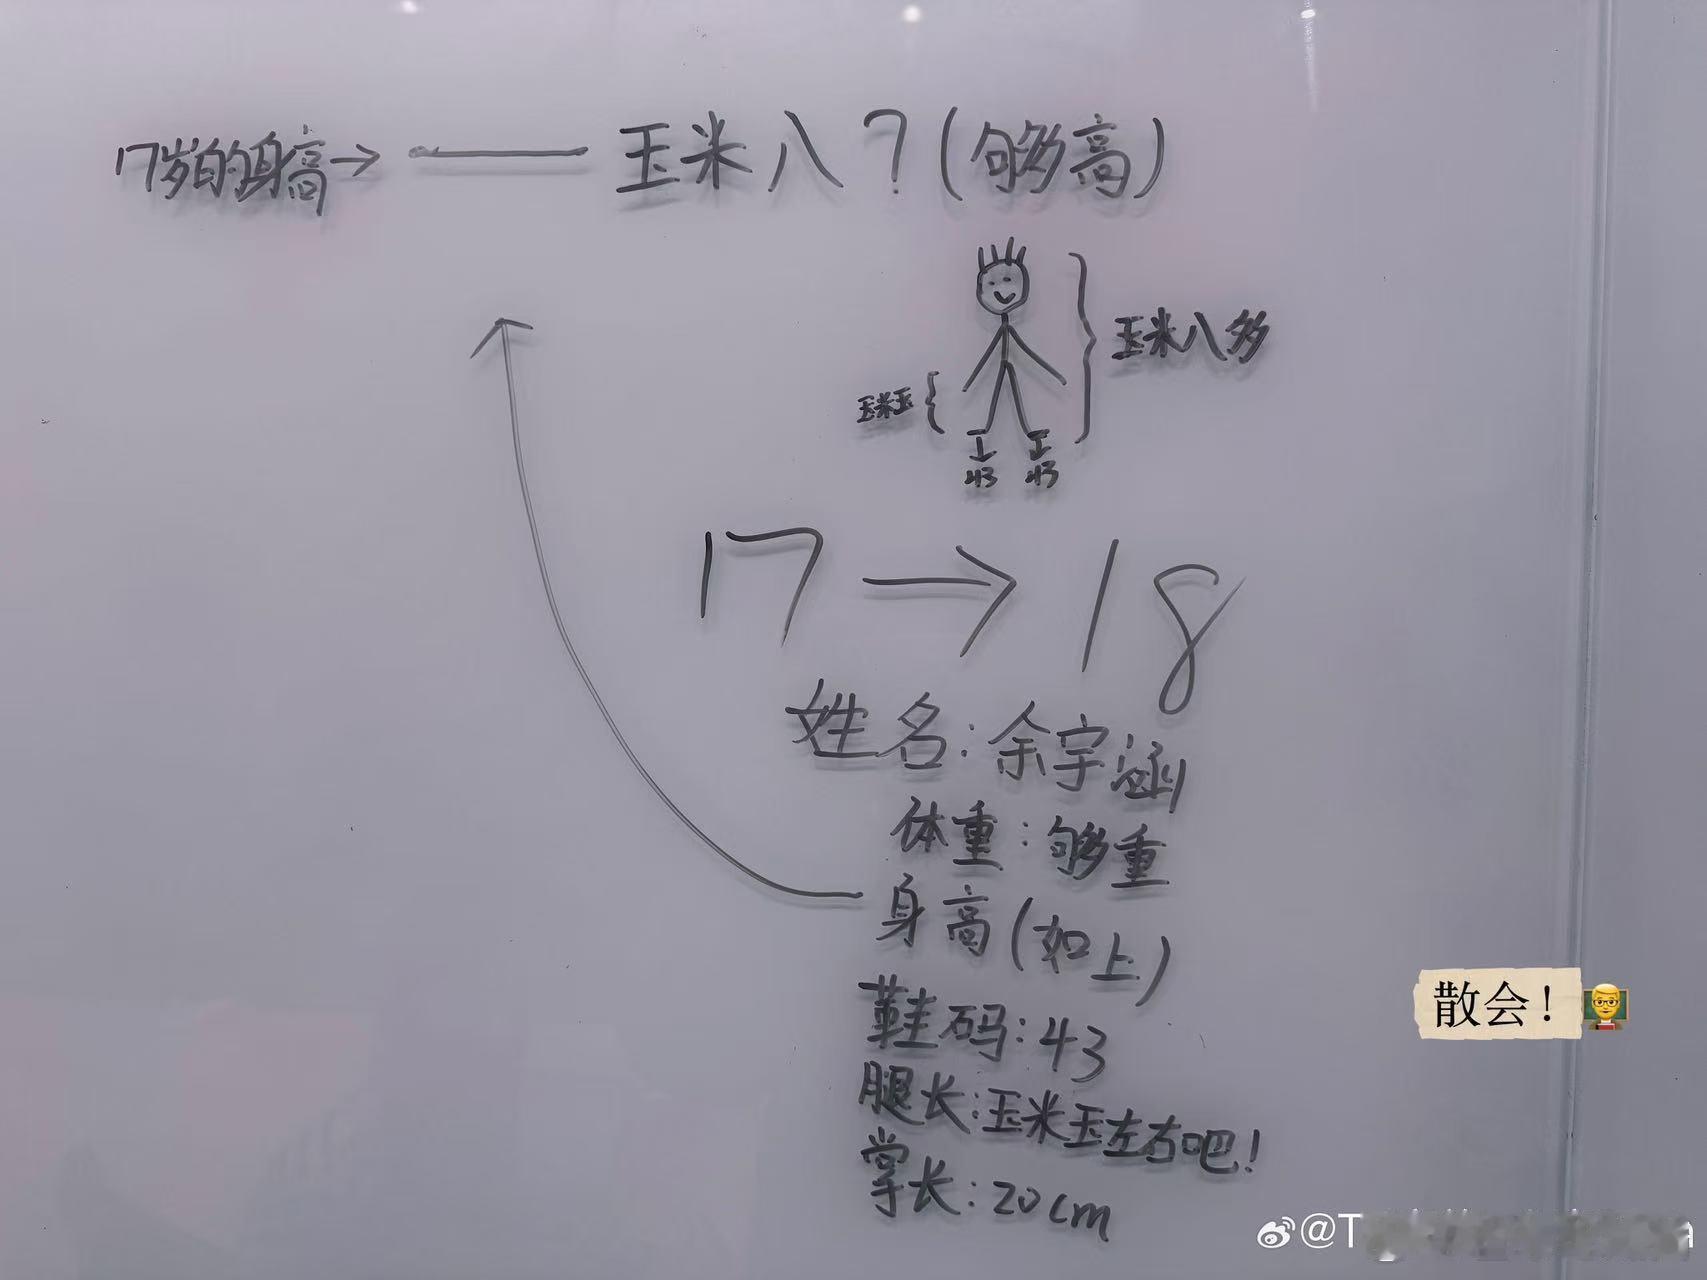 17岁的身高→ —— 玉米八?(够多高)
玉米八多
玉米玉
43 43
17→18
姓名:余宇涵
体重:够多重
身高(如上)
鞋码:43
腿长:玉米玉左右吧!
掌长:20cm
散会!
@T
a